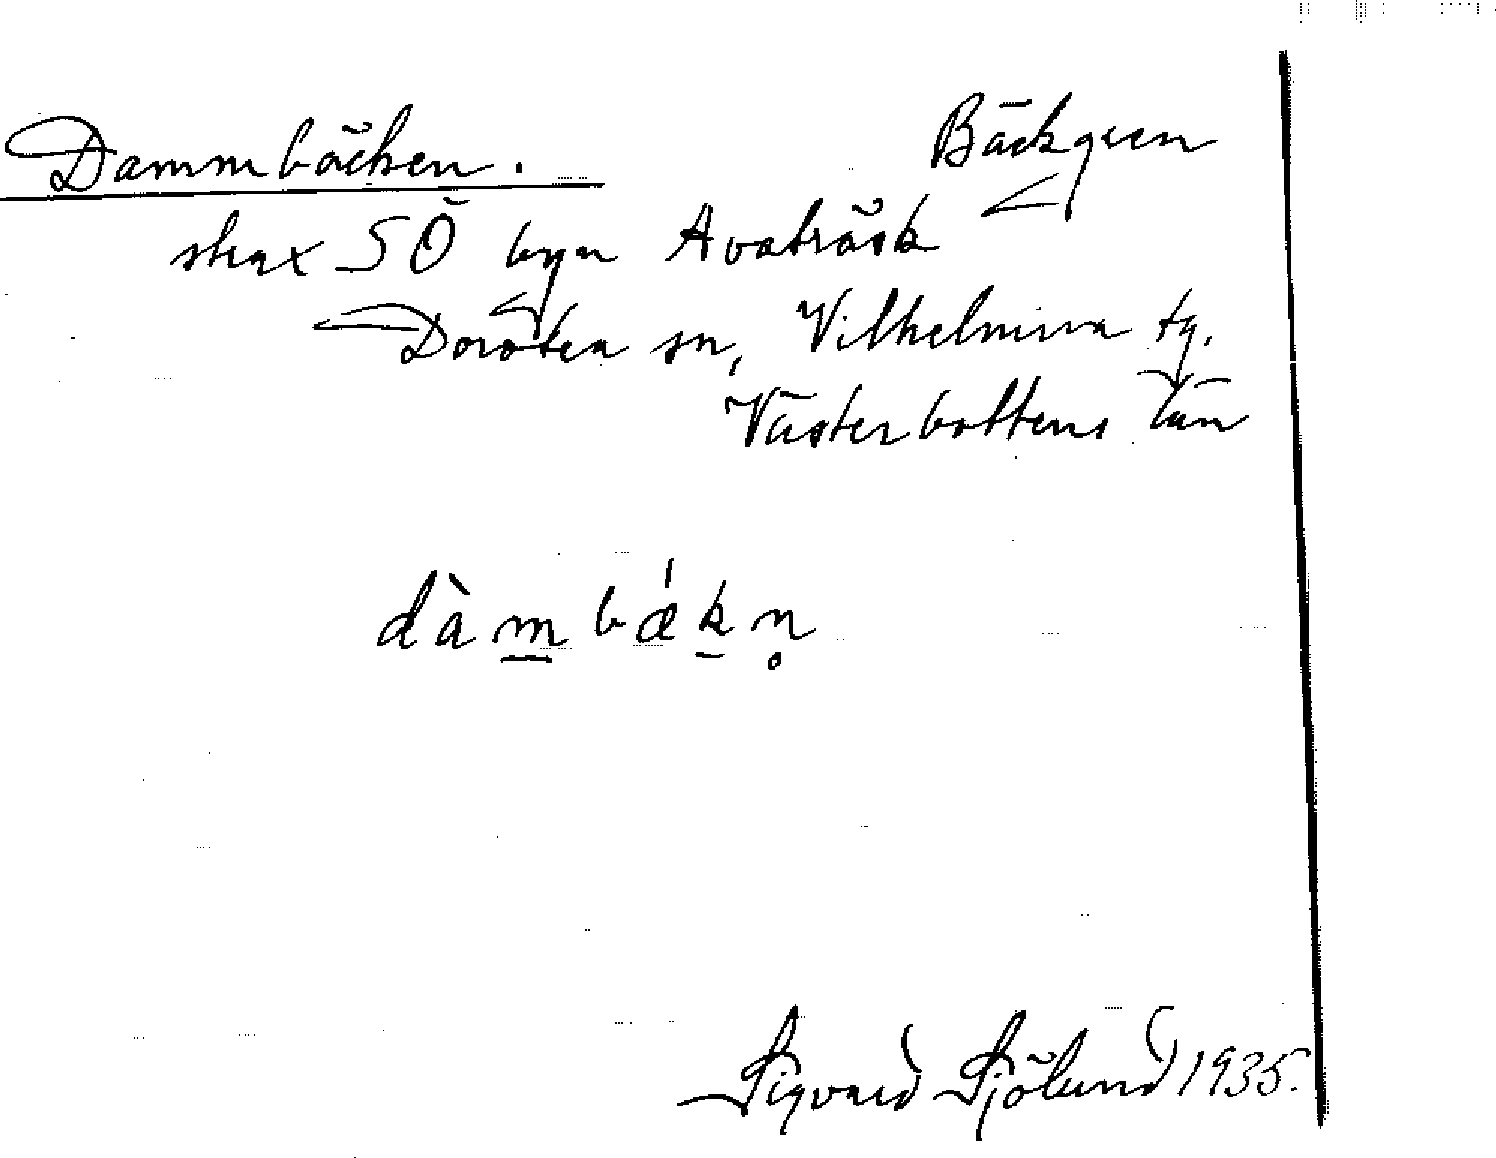 Dammbäcken. Bäckgren
strax SÖ byn Avaträsk
Dorotea sn, Vilhelmina tg.
Västerbottens län
dàm̲bǽk̲n̥
Sigvard Sjölund 1935.